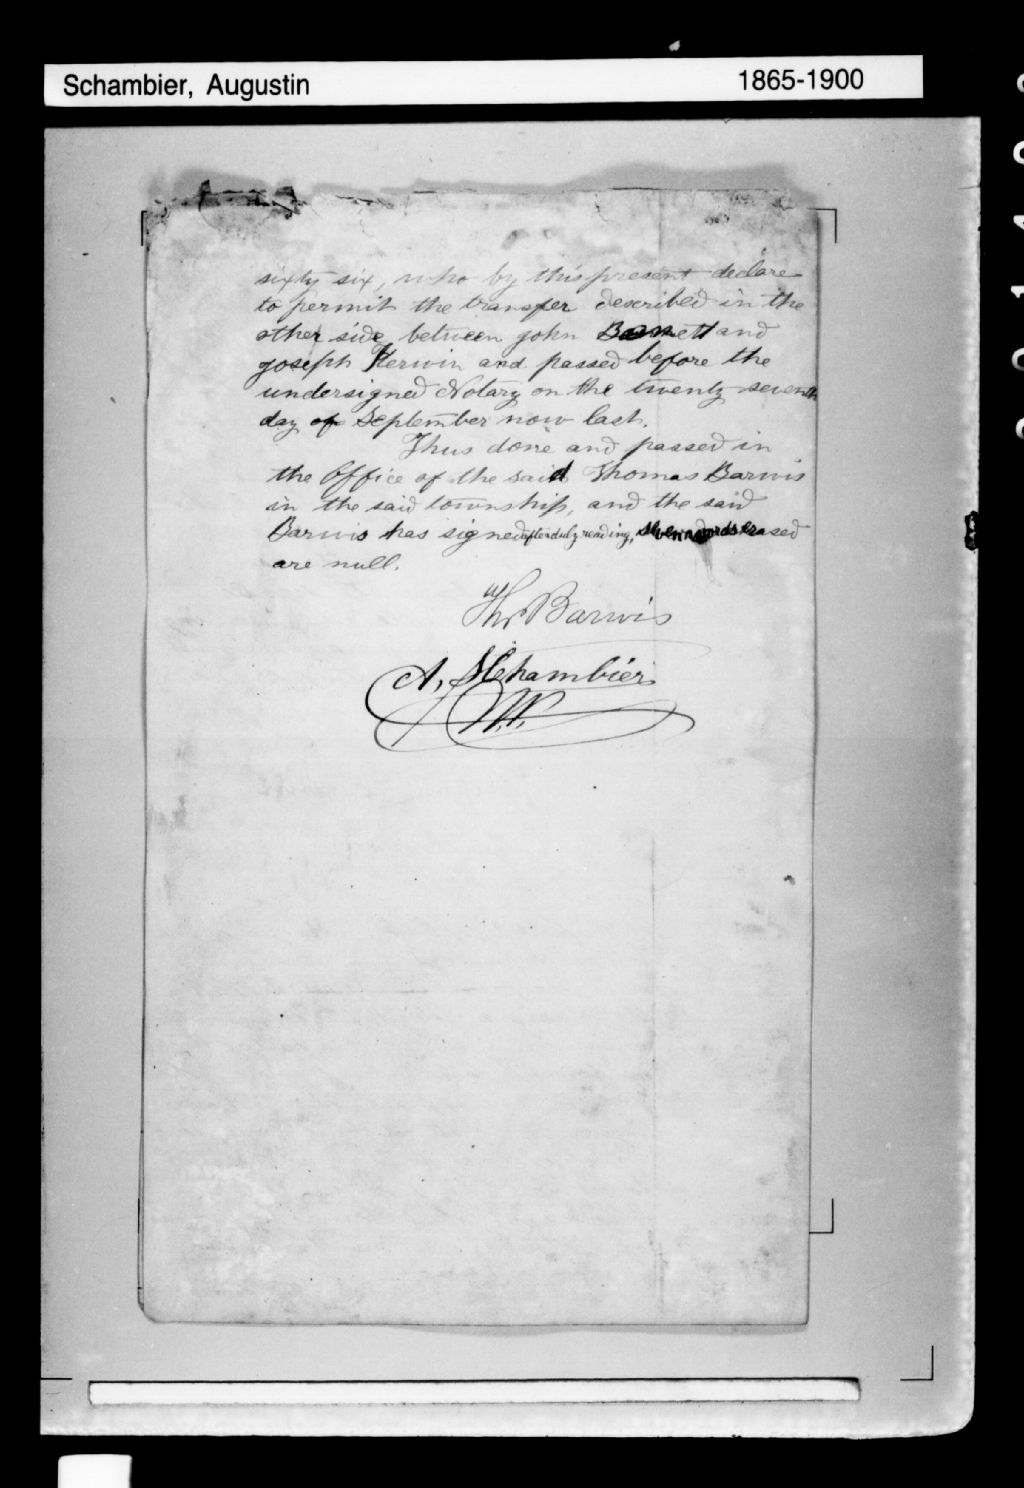 Schambier, Augustin 1865-1900
sixty six, who by this present declare
to permit the transfer described in the
other side between john Barnett and
joseph Kerwin and passed before the
undersigned Notary on the twenty seventh
day of September now last.
Thus done and passed in
the Office of the said Thomas Barwis
in the said township, and the said
Barwis has signed after duly reading, seven words erased
are null.
Thos Barwis
A. Schambier
N.P.